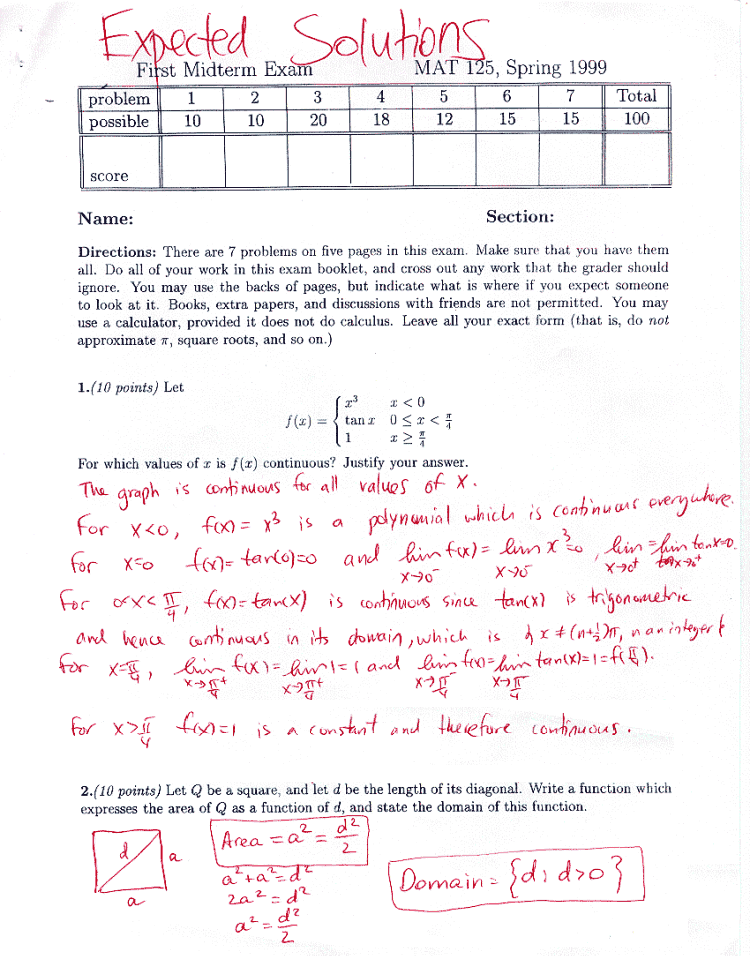 Expected Solutions
First Midterm Exam MAT 125, Spring 1999
problem 1 2 3 4 5 6 7 Total
possible 10 10 20 18 12 15 15 100
score
Name: Section:
Directions: There are 7 problems on five pages in this exam. Make sure that you have them
all. Do all of your work in this exam booklet, and cross out any work that the grader should
ignore. You may use the backs of pages, but indicate what is where if you expect someone
to look at it. Books, extra papers, and discussions with friends are not permitted. You may
use a calculator, provided it does not do calculus. Leave all your exact form (that is, do not
approximate π, square roots, and so on.)
1.(10 points) Let
f(x) = { x³ x < 0
tan x 0 ≤ x < π/4
1 x ≥ π/4
For which values of x is f(x) continuous? Justify your answer.
The graph is continuous for all values of x.
For x<0, f(x) = x³ is a polynomial which is continuous everywhere.
for x=0 f(x)= tan(0)=0 and lim x→0⁻ f(x) = lim x→0⁻ x³=0, lim x→0⁺ = lim x→0⁺ tanx=0.
For 0<x<π/4, f(x)=tan(x) is continuous since tan(x) is trigonometric
and hence continuous in its domain, which is {x ≠ (n+½)π, n an integer}
for x=π/4, lim x→π/4⁺ f(x) = lim x→π/4⁺ 1 = 1 and lim x→π/4⁻ f(x)= lim x→π/4⁻ tan(x)=1=f(π/4).
For x>π/4 f(x)=1 is a constant and therefore continuous.
2.(10 points) Let Q be a square, and let d be the length of its diagonal. Write a function which
expresses the area of Q as a function of d, and state the domain of this function.
d a
a
Area = a² = d²/2
a²+a²=d²
2a²=d²
a²=d²/2
Domain = {d; d>0}